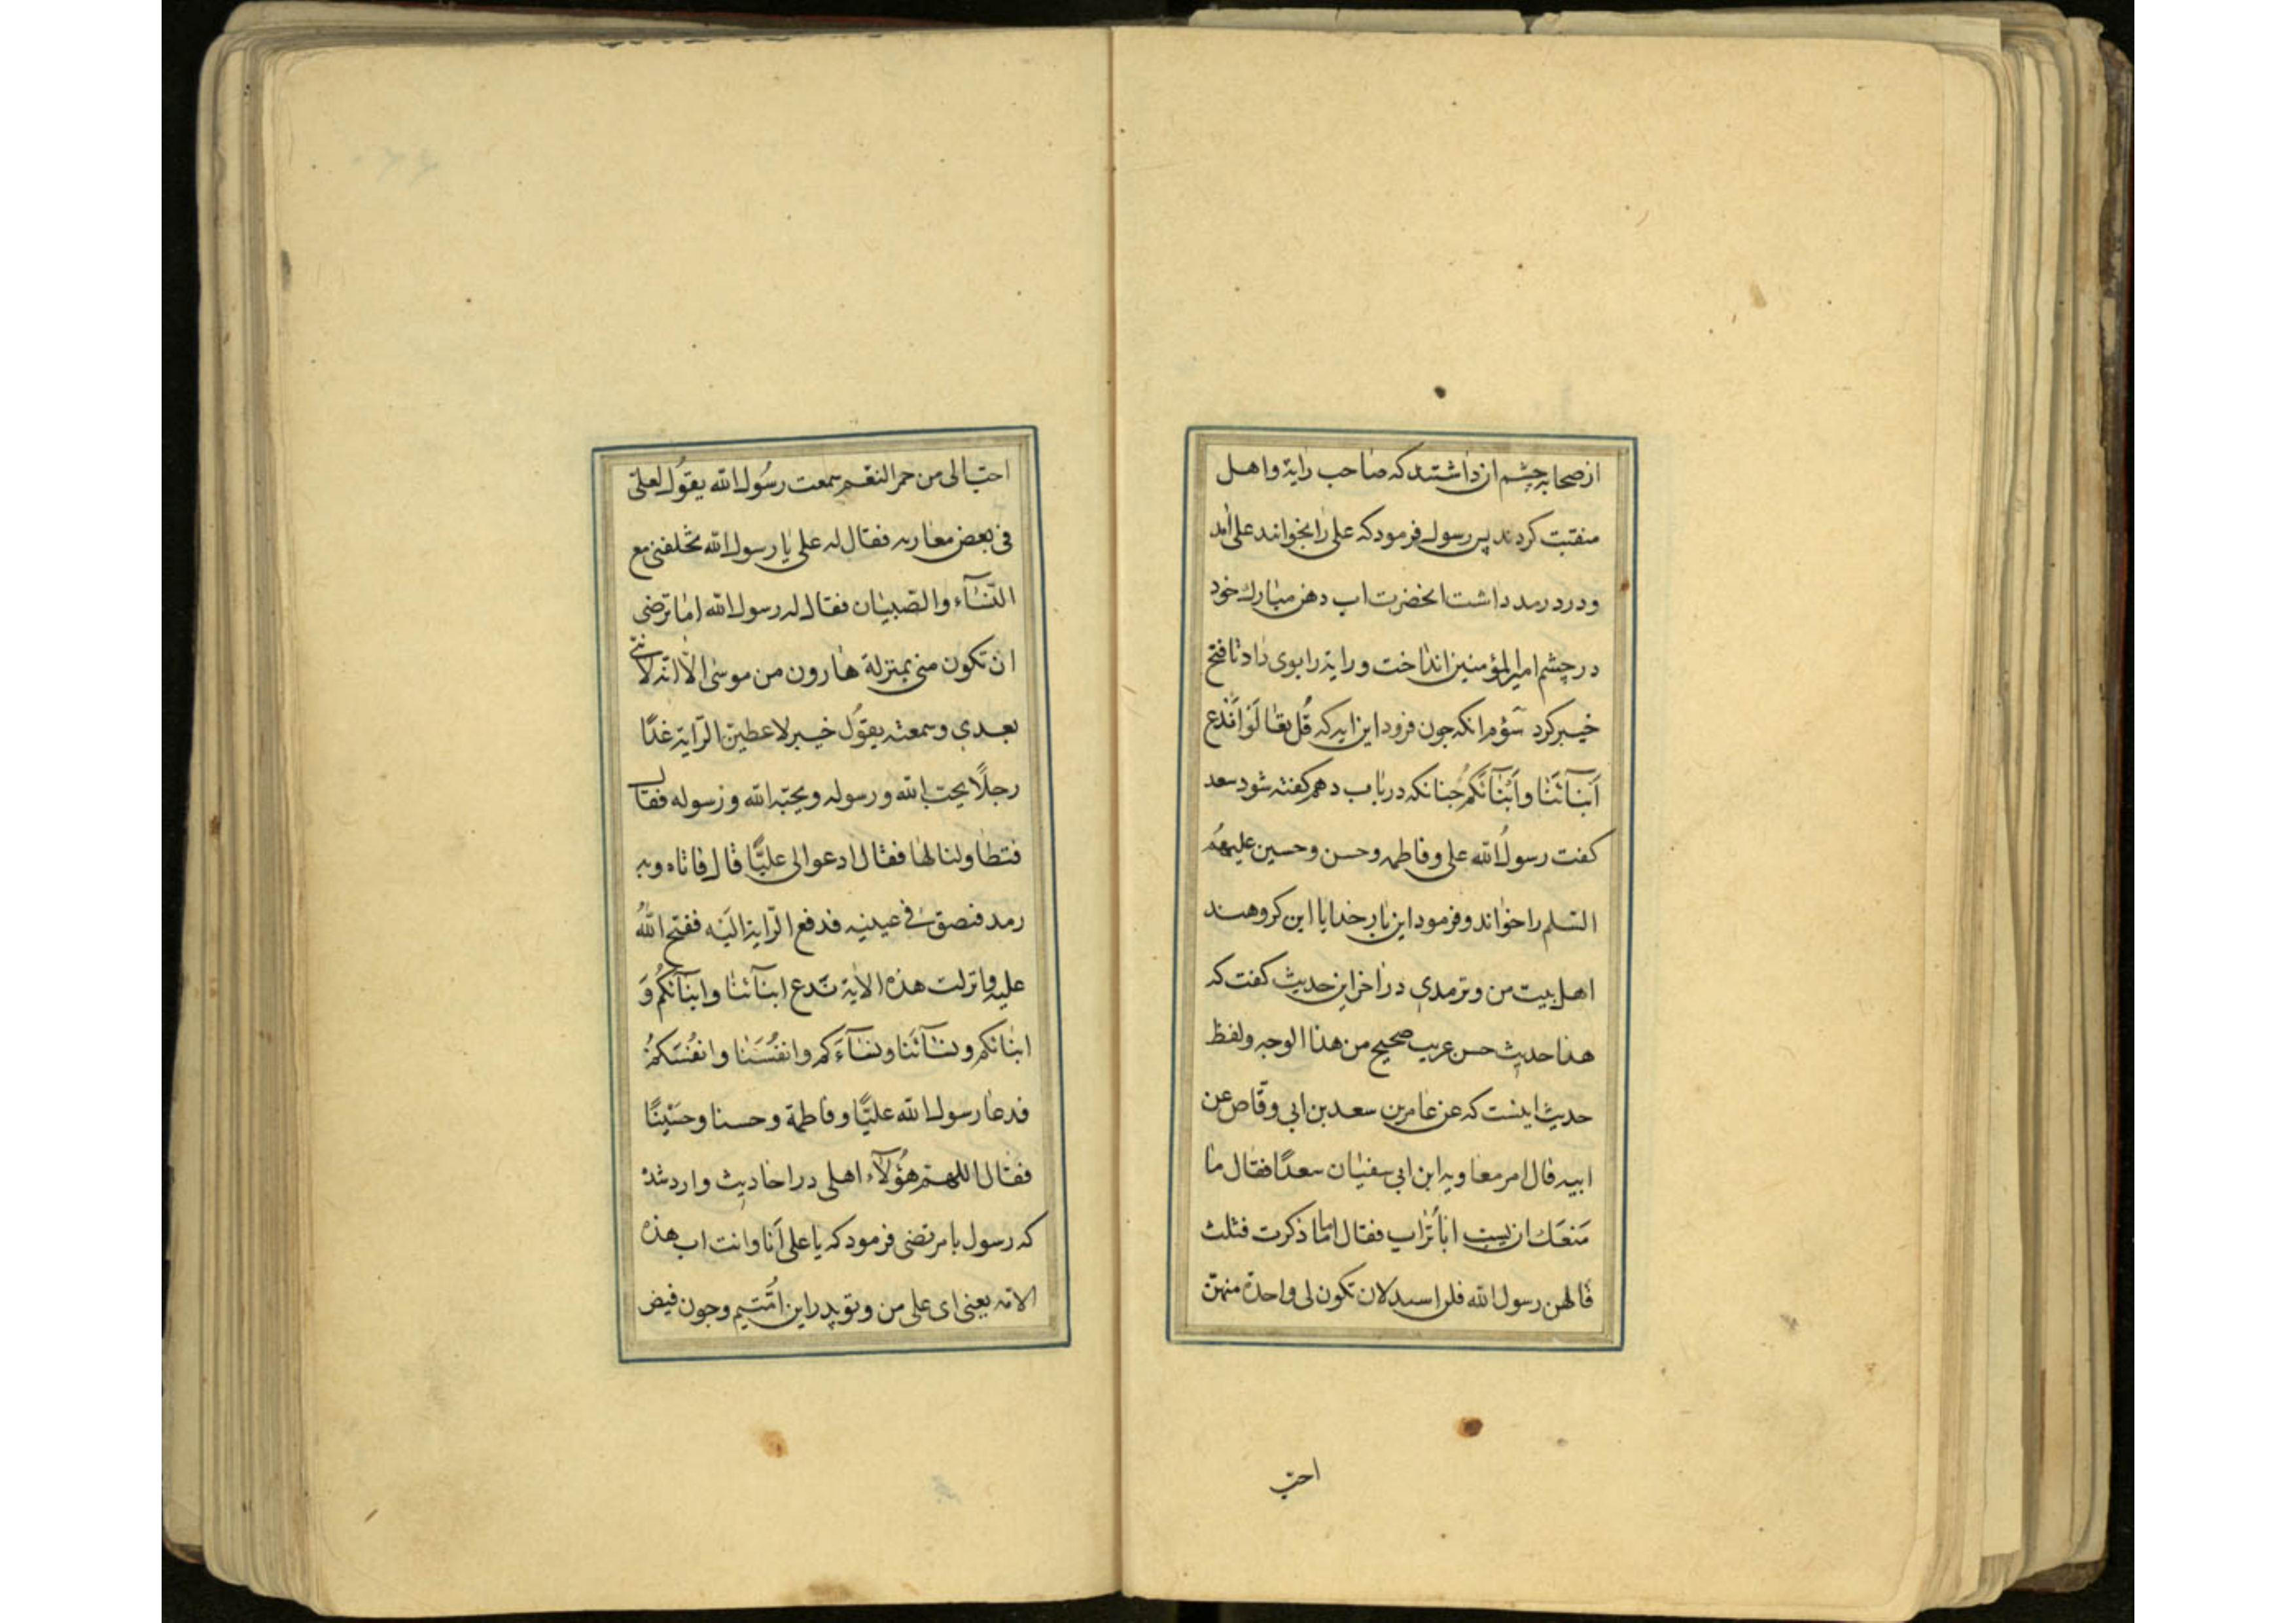 ازصحابه چشم ان داشتند که صاحب رایة واهل
منقبت کردند پس رسول فرمود که علی را بخوانند علی امد
ودرد رمد داشت انحضرت اب دهن مبارك خود
در چشم امیرالمؤمنین انداخت ورایة را بوی داد تا فتح
خیبر کرد سؤم انکه جون فرود این ایه که قُل تعٰالَوا نَدع
اَبنآئَنٰا واَبنٰآئَکُم جنانکه در باب دهم کفته شود سعد
کفت رسولُ الله علی وفاطمه وحسن وحسین علیهمُ
السّلم را خواند وفرمود این بار خدایا این کروهند
اهل بیت من وترمدی در اخر این حدیث کفت که
هذا حدیث حسن غریب صحیح من هذا الوجه ولفظ
حدیث اینست که عن عامر بن سعد بن ابی وقّاص عن
ابیه قال امر معاویه ابن ابی سفیٰان سعدًا فقال ما
مَنعَك ان یسب ابا تُراب فقال اما ما ذکرت فثلث
قالهن رسول الله فلن اسبه لان تکون لی واحدة منهنّ
احبّ
احبّ الی من حمر النعم سمعت رسُول الله یقوُل لعلیّ
فی بعض مغاریه فقال له علی یا رسول الله تخلفنی مع
النّسآء والصّبیٰان فقال له رسول الله امٰا ترضی
ان تکون منی بمنزلة هارون من موسٰی الّا انّه لا نبیّ
بعدی وسمعته یقوُل خیبر لاعطینّ الرّایة غدًا
رجلًا یحبّ الله ورسوله ویحبّه الله ورسوله فقال
فتطاولنا لها فقال ادعوا لی علیًّا قال فاتاه وبه
رمد فبصق فی عینیه فدفع الرّایة الیَه ففتح اللهُ
علیه وانزلت هذه الایة نَدع ابنآئنٰا وابنآئکُم وَ
ابنائکم ونسٰآئَنا ونسٰآءَکم وانفُسَنٰا وانفُسَکمُ
فدعا رسول الله علیًّا وفاطمة وحسنا وحسَینًا
فقال اللهم هؤُلآء اهلی در احادیث وارد شدهٔ
که رسول با مرتضی فرمود که یا علی اَنا وانت اب هذه
الامّه یعنی ای علی من وتو پدر این امُّتیم وجون فیض